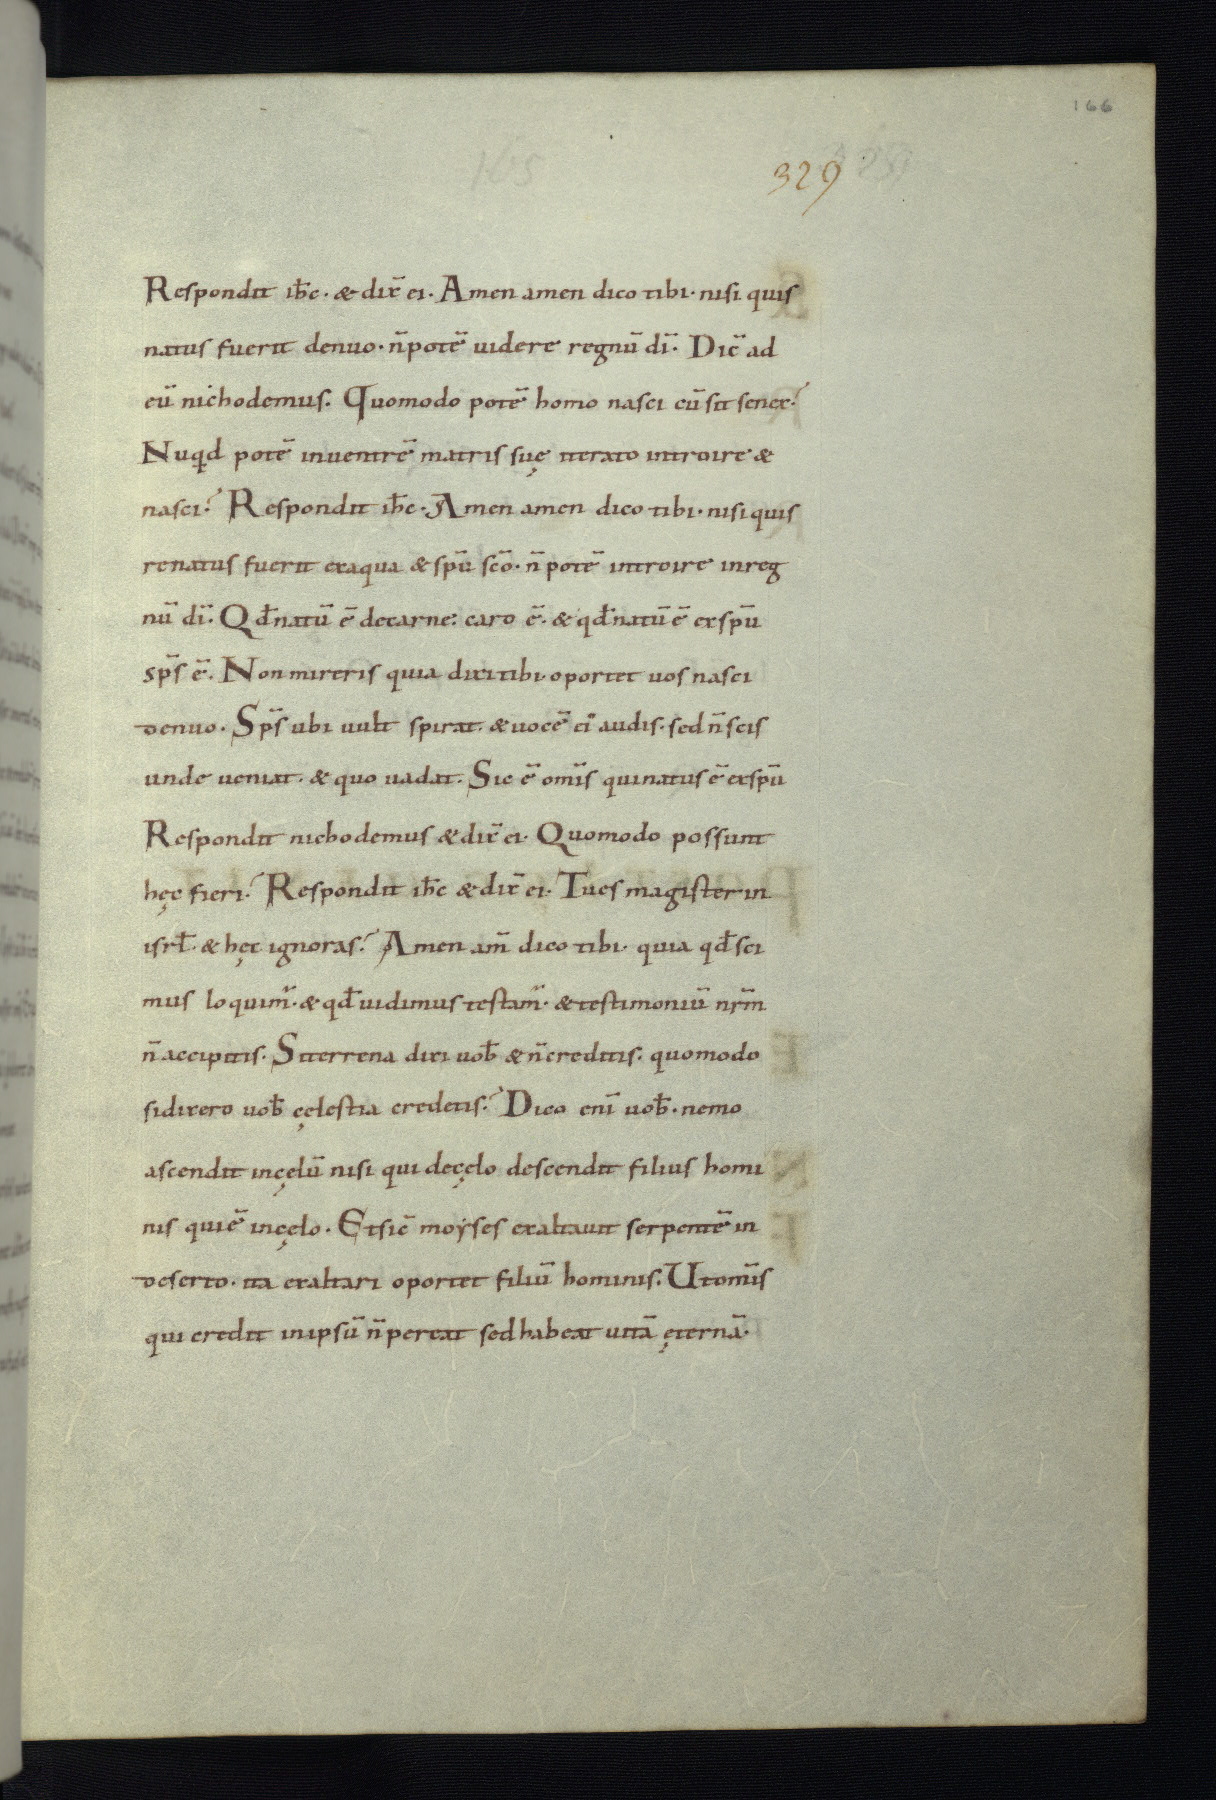 166
329
Respondit ihc̄. & dix̄ ei. Amen amen dico tibi. nisi quis
natus fuerit denuo. n̄ potē uidere regnū dī. Dic̄ ad
eū nichodemus. Quomodo potē homo nasci cū sit senex?
Nuqd potē inuentrē matris suę iterato introire &
nasci? Respondit ihc̄. Amen amen dico tibi. nisi quis
renatus fuerit exaqua & spū scō. n̄ potē introire inreg
nū dī. Qd̄ natū ē decarne: caro ē. & qd̄ natū ē exspū
sps̄ ē. Non mireris quia dixi tibi. oportet uos nasci
denuo. Sps̄ ubi uult spirat. & uocē ei audis. sed n̄ scis
unde ueniat. & quo uadat. Sic ē omīs qui natus ē exspū
Respondit nichodemus & dix̄ ei. Quomodo possunt
hęc fieri? Respondit ihc̄ & dix̄ ei. Tu es magister in
isrł. & hęc ignoras? Amen am̄ dico tibi. quia qd̄ sci
mus loquim̄. & qd̄ uidimus testam̄. & testimoniū nrm̄
n̄ accipitis. Si terrena dixi uob̄ & n̄ creditis. quomodo
si dixero uob̄ cęlestia credetis? Dico enī uob̄. nemo
ascendit incęlū nisi qui decęlo descendit filius homi
nis qui ē incęlo. Et sic̄ moyses exaltauit serpentē in
deserto. ita exaltari oportet filiū hominis. Ut omīs
qui credit inipsū n̄ pereat sed habeat uitā ęternā.